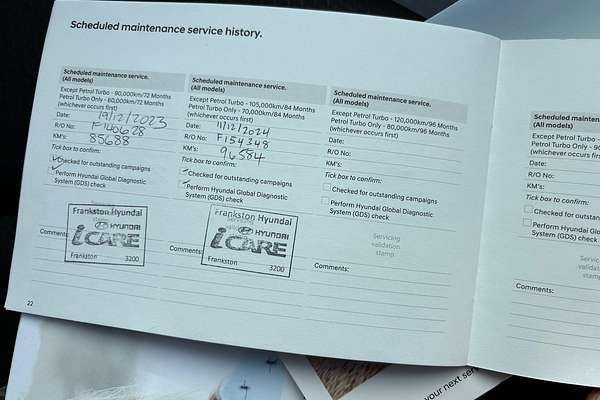 Scheduled maintenance service history.
Scheduled maintenance service.
(All models)
Except Petrol Turbo - 90,000km/72 Months
Petrol Turbo Only - 60,000km/72 Months
(whichever occurs first)
Date: 19/12/2023
R/O No: F140628
KM's: 85688
Tick box to confirm:
Checked for outstanding campaigns
Perform Hyundai Global Diagnostic
System (GDS) check
Frankston Hyundai
HYUNDAI
iCARE
Frankston 3200
Comments:
Scheduled maintenance service.
(All models)
Except Petrol Turbo - 105,000km/84 Months
Petrol Turbo Only - 70,000km/84 Months
(whichever occurs first)
Date: 11/12/2024
R/O No: F154348
KM's: 96584
Tick box to confirm:
Checked for outstanding campaigns
Perform Hyundai Global Diagnostic
System (GDS) check
Frankston Hyundai
HYUNDAI
iCARE
Frankston 3200
Comments:
Scheduled maintenance service.
(All models)
Except Petrol Turbo - 120,000km/96 Months
Petrol Turbo Only - 80,000km/96 Months
(whichever occurs first)
Date:
R/O No:
KM's:
Tick box to confirm:
Checked for outstanding campaigns
Perform Hyundai Global Diagnostic
System (GDS) check
Servicing
validation
stamp
Comments:
Scheduled maintenan
(All models)
Except Petrol Turbo -
Petrol Turbo Only - 9
(whichever occurs first)
Date:
R/O No:
KM's:
Tick box to confirm:
Checked for outstan
Perform Hyundai Glo
System (GDS) check
Servic
valida
stam
Comments:
22
your next ser